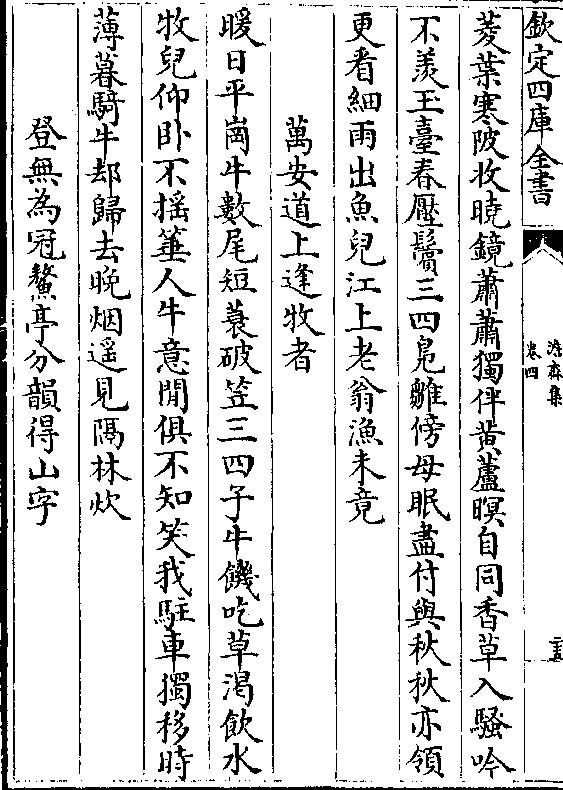 欽定四庫全書
卷四
菱葉寒陂收曉鏡蕭蕭獨伴黃蘆暝自同香草入騷吟
不羨玉臺春壓鬢三四鳬雛傍母眠盡付與秋秋亦領
更看細雨出魚兒江上老翁漁未竟
萬安道上逢牧者
暖日平崗牛數尾短蓑破笠三四子牛饑吃草渴飲水
牧兒仰卧不揺箠人牛意閒俱不知笑我駐車獨移時
薄暮騎牛却歸去晚烟遥見隔林炊
登無為冠鰲亭分韻得山字